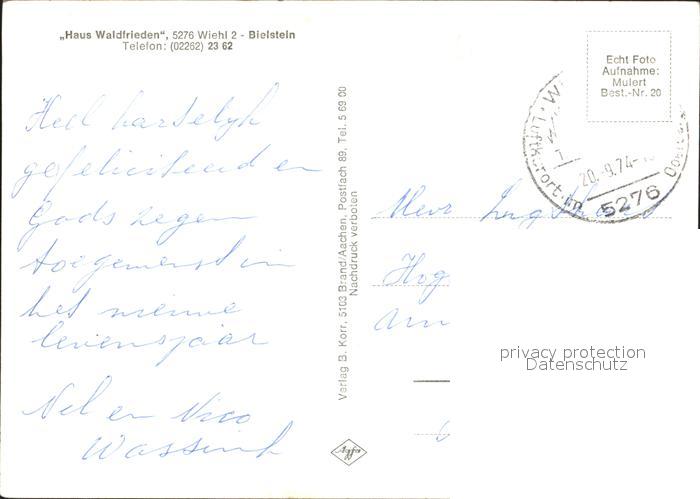 „Haus Waldfrieden“, 5276 Wiehl 2 - Bielstein
Telefon: (02262) 23 62
Heel hartelijk
gefeliciteerd en
Gods zegen
toegewenst in
het nieuwe
levensjaar
Nel en Nico
Wassink
Verlag B. Korr, 5103 Brand/Aachen, Postfach 89, Tel. 5 69 00
Nachdruck verboten
Agfa
Echt Foto
Aufnahme:
Mulert
Best.-Nr. 20
Luftkurort im
20.-9.74
5276
Mevr
privacy protection
Datenschutz